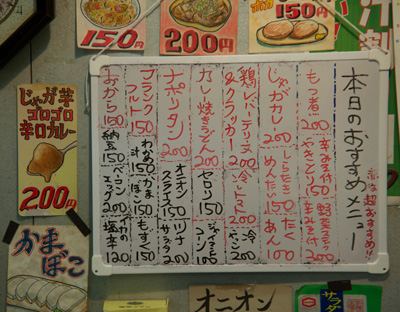 150円
200円
150円
本日のおすすめメニュー
赤は超おすすめ!!
もつ煮 200
辛みそ付やきとり 150
野菜スティック辛みそ付 200
じゃがカレー 200
しらたきめんたい 150
たくあん 100
鶏レバーテリーヌ&クラッカー 200
冷しトマト 200
冷やっこ
カレー焼きうどん 200
セロリ 150
ナポリタン 200
オニオンスライス 150
ツナサラダ 200
フランクフルト 150
わかめ
かまぼこ 150
もずく 150
おから 150
納豆 150
ベーコンエッグ 200
イカの塩辛 120
じゃが芋
ゴロゴロ
辛口カレー
200円
かまぼこ
オニオン
サラダ